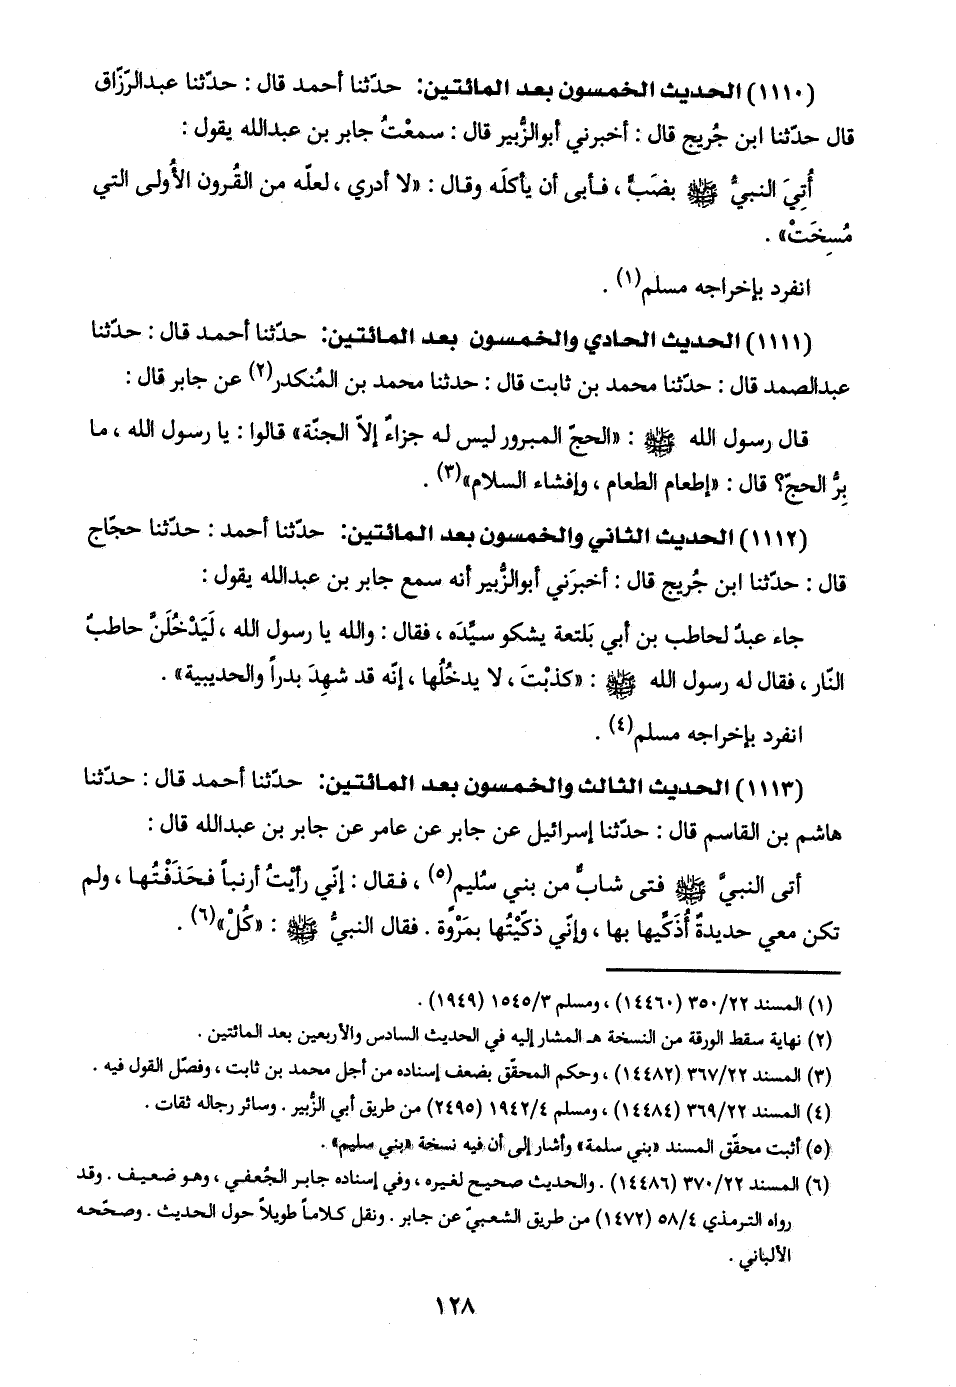 (١١١٠) الحديث الخمسون بعد المائتين: حدّثنا أحمد قال : حدّثنا عبدالرّزّاق
قال حدّثنا ابن جُريج قال : أخبرني أبوالزُّبير قال : سمعْتُ جابر بن عبدالله يقول :
أُتِيَ النبيُّ ﷺ بضَبٍّ ، فأبى أن يأكلَه وقال : «لا أدري ، لعلّه من القُرون الأُولى التي
مُسِخَتْ» .
انفرد بإخراجه مسلم(١) .
(١١١١) الحديث الحادي والخمسون بعد المائتين: حدّثنا أحمد قال : حدّثنا
عبدالصمد قال : حدّثنا محمد بن ثابت قال : حدثنا محمد بن المُنكدر(٢) عن جابر قال :
قال رسول الله ﷺ : «الحجّ المبرور ليس له جزاءٌ إلاّ الجنّة» قالوا : يا رسول الله ، ما
بِرُّ الحجّ؟ قال : «إطعام الطعام ، وإفشاء السلام»(٣) .
(١١١٢) الحديث الثاني والخمسون بعد المائتين: حدّثنا أحمد : حدّثنا حجّاج
قال : حدّثنا ابن جُريج قال : أخبرَني أبوالزُّبير أنه سمع جابر بن عبدالله يقول :
جاء عبدٌ لحاطب بن أبي بَلتعة يشكو سيِّدَه ، فقال : والله يا رسول الله ، لَيَدْخُلَنَّ حاطبٌ
النّار ، فقال له رسول الله ﷺ : «كذبْتَ ، لا يدخُلُها ، إنّه قد شهِدَ بدراً والحديبية» .
انفرد بإخراجه مسلم(٤) .
(١١١٣) الحديث الثالث والخمسون بعد المائتين: حدّثنا أحمد قال : حدّثنا
هاشم بن القاسم قال : حدّثنا إسرائيل عن جابر عن عامر عن جابر بن عبدالله قال :
أتى النبيَّ ﷺ فتى شابٌّ من بني سُليم(٥) ، فقال : إنّي رأيْتُ أرنباً فحَذَفْتُها ، ولم
تكن معي حديدةٌ أُذَكِّيها بها ، وإنّي ذكّيْتُها بمَرْوَة . فقال النبيُّ ﷺ : «كُلْ»(٦) .
(١) المسند ٣٥٠/٢٢ (١٤٤٦٠) ، ومسلم ١٥٤٥/٣ (١٩٤٩) .
(٢) نهاية سقط الورقة من النسخة هـ المشار إليه في الحديث السادس والأربعين بعد المائتين .
(٣) المسند ٣٦٧/٢٢ (١٤٤٨٢) ، وحكم المحقّق بضعف إسناده من أجل محمد بن ثابت ، وفصّل القول فيه .
(٤) المسند ٣٦٩/٢٢ (١٤٤٨٤) ، ومسلم ١٩٤٢/٤ (٢٤٩٥) من طريق أبي الزُّبير . وسائر رجاله ثقات .
(٥) أثبت محقّق المسند «بني سلمة» وأشار إلى أن فيه نسخة «بني سليم» .
(٦) المسند ٣٧٠/٢٢ (١٤٤٨٦) . والحديث صحيح لغيره ، وفي إسناده جابر الجُعفي ، وهو ضعيف . وقد
رواه الترمذي ٥٨/٤ (١٤٧٢) من طريق الشعبيّ عن جابر . ونقل كلاماً طويلاً حول الحديث . وصحّحه
الألباني .
١٢٨